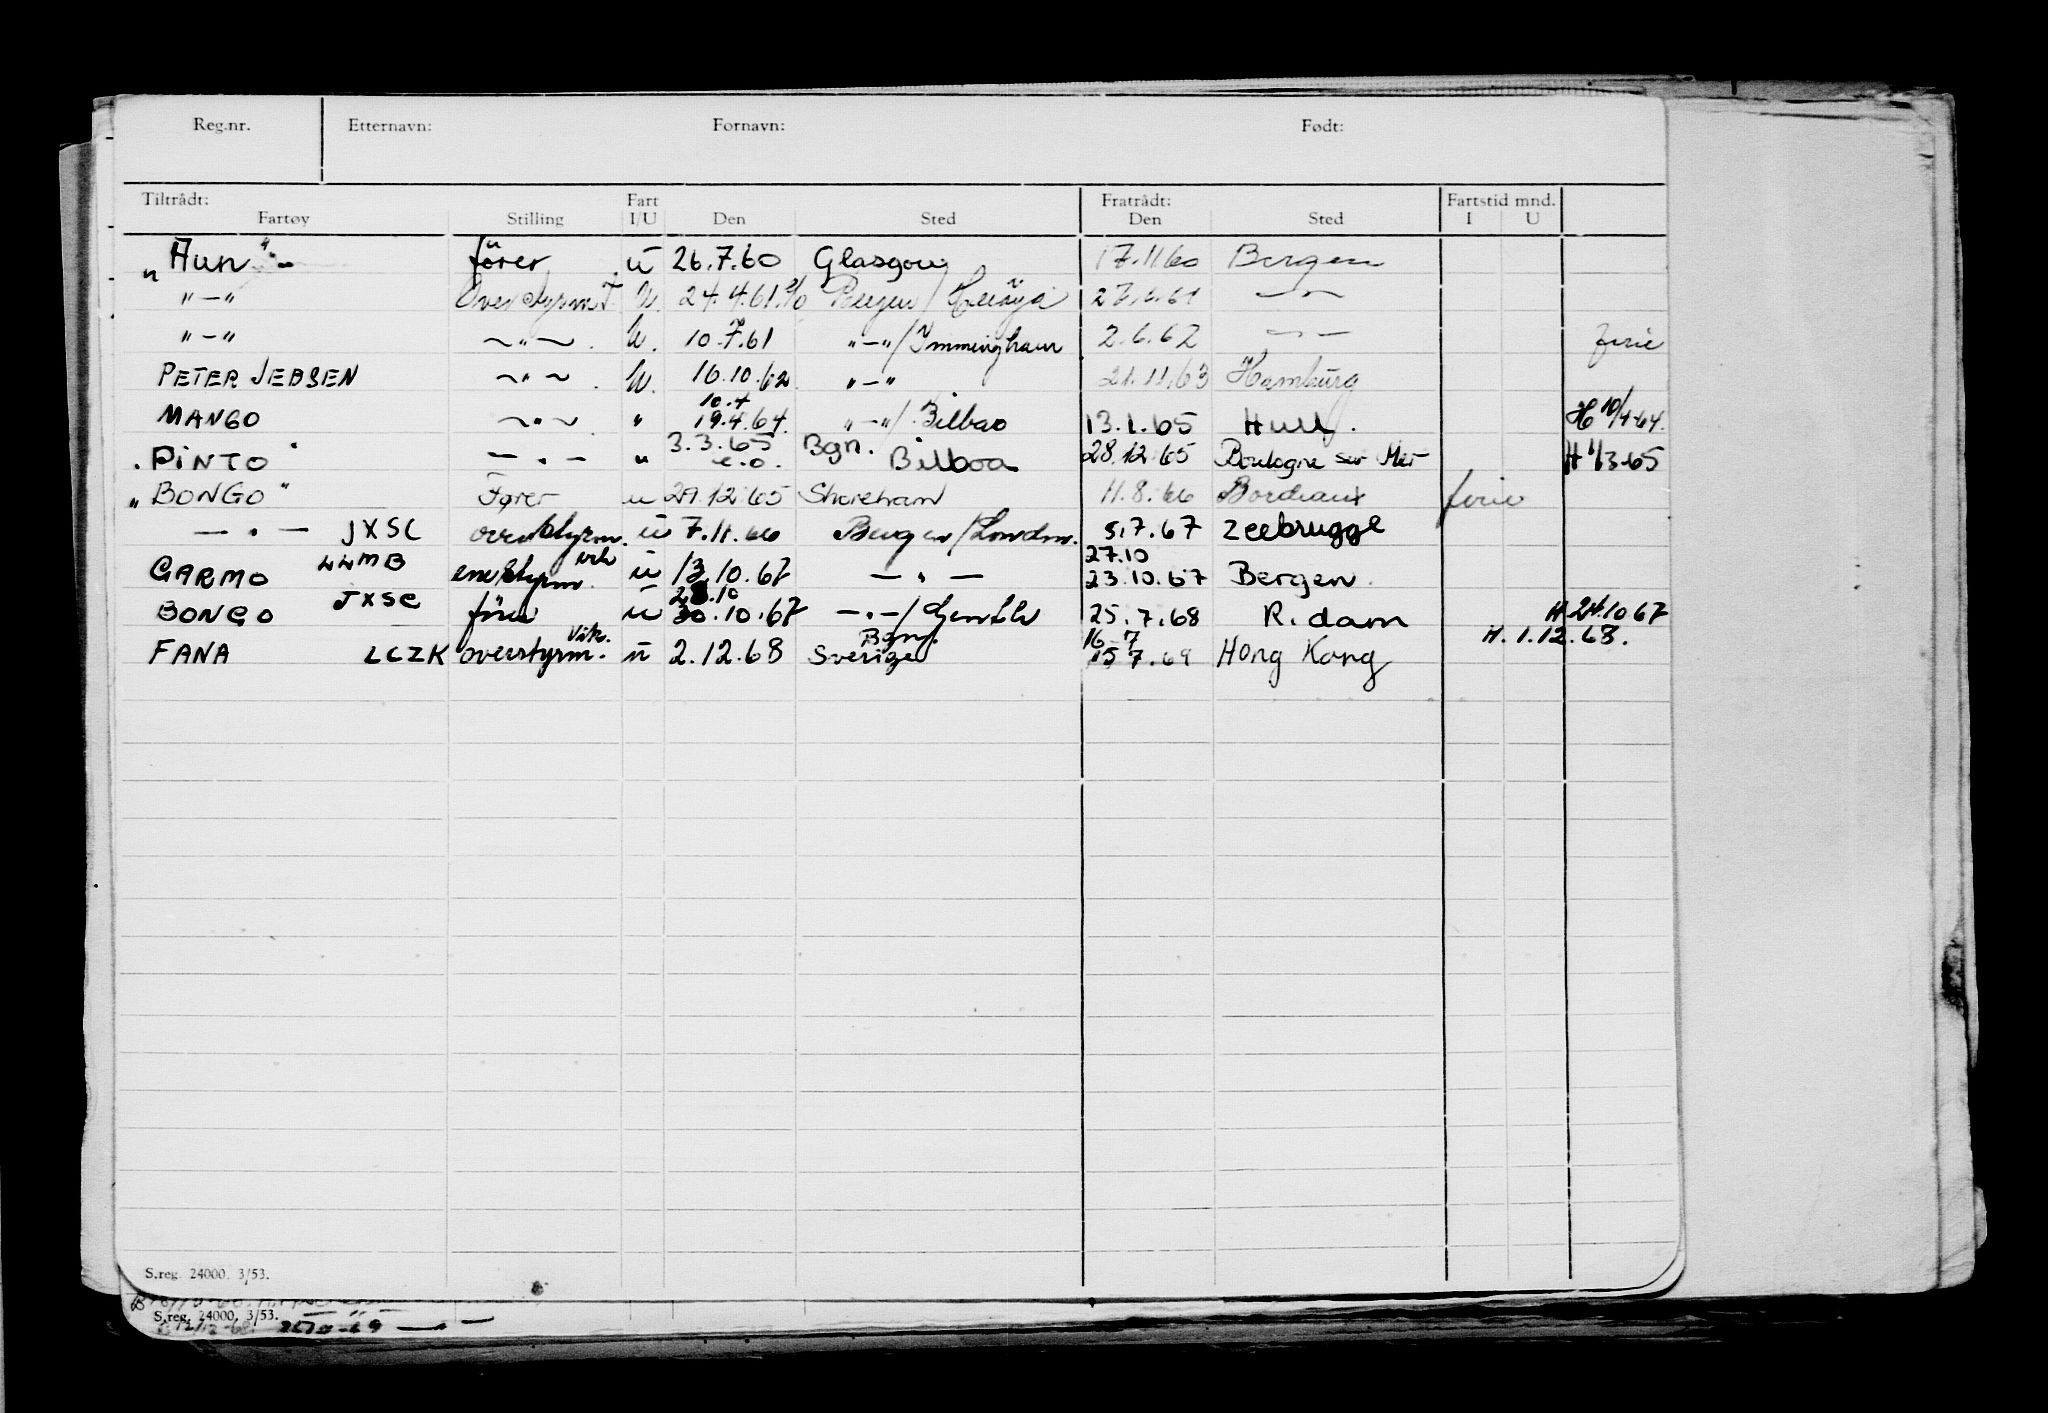 Reg.nr. Etternavn: Fornavn: Født:
Tiltrådt: Fart Fratrådt: Fartstid mnd.
Fartøy Stilling I/U Den Sted Den Sted I U
„Hun" förer ü 26.7.60 Glasgow 17.11.60 Bergen
"—" Overstyrm. U. 24.4.61 Bergen/Herøya 27.6.61 —"—
"—" —"—. U. 10.7.61 "—"/Immingham 2.6.62 —"— ferie
PETER JEBSEN —"—. U. 16.10.62. "—" 21.11.63 Hamburg
MANGO —"—. " 10.4 19.4.64. "—"/Bilbao 13.1.65 Hull. H 10/4-64.
"PINTO" —"— " 3.3.65 e.o. Bgn. Bilboa 28.12.65 Boulogne sur Mer H 1/3-65
„BONGO" Fører u 29.12.65 Shoreham 11.8.66 Bordeaux ferie
—"— JXSC overstyrm. ü 7.11.66 Bergen/London. 5.7.67 Zeebrugge
GARMO LLMB enestyrm. ü 13.10.67 —"— 27.10 23.10.67 Bergen.
BONGO JXSC förer ü 28.10 30.10.67 —"—/ 25.7.68 R.dam H. 24.10 67
FANA LCZK overstyrm. vik. ü 2.12.68 Bgn/ Sverige 16-7 15 7.69 Hong Kong H. 1.12.68.
S.reg. 24000. 3/53.
S.reg. 24000. 3/53.